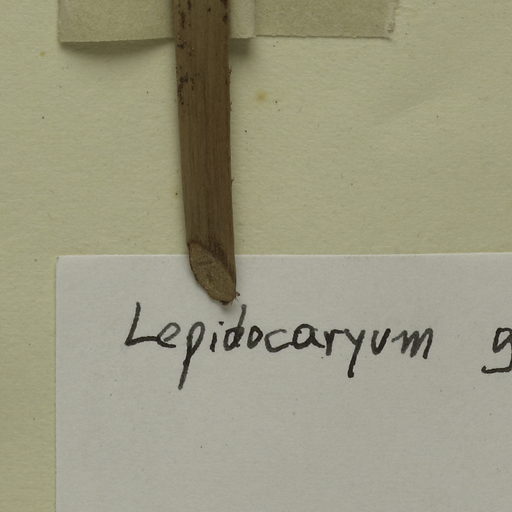 Lepidocaryum g